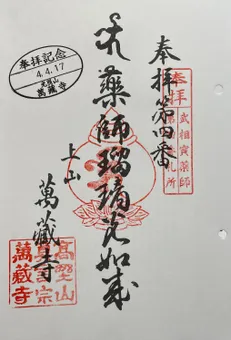 奉拝第四番
奉拝
武相寅薬師
薬師瑠璃光如来
上山
萬藏寺
奉拝記念
4.4.17
萬藏寺
高野山
真言宗
萬藏寺